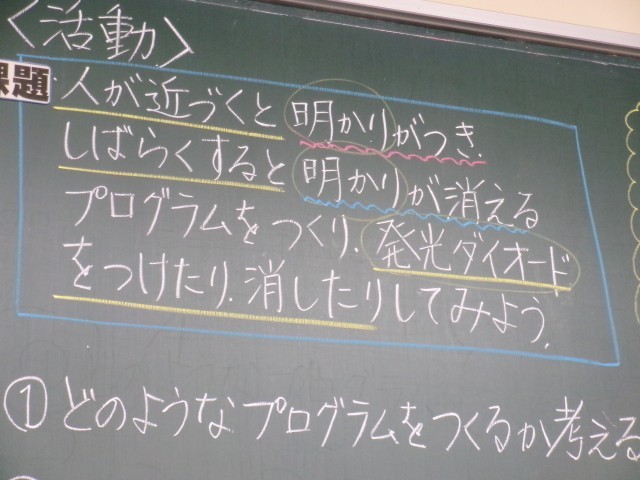 <活動>
課題
人が近づくと明かりがつき、
しばらくすると明かりが消える
プログラムをつくり、発光ダイオード
をつけたり、消したりしてみよう。
①どのようなプログラムをつくるか考える